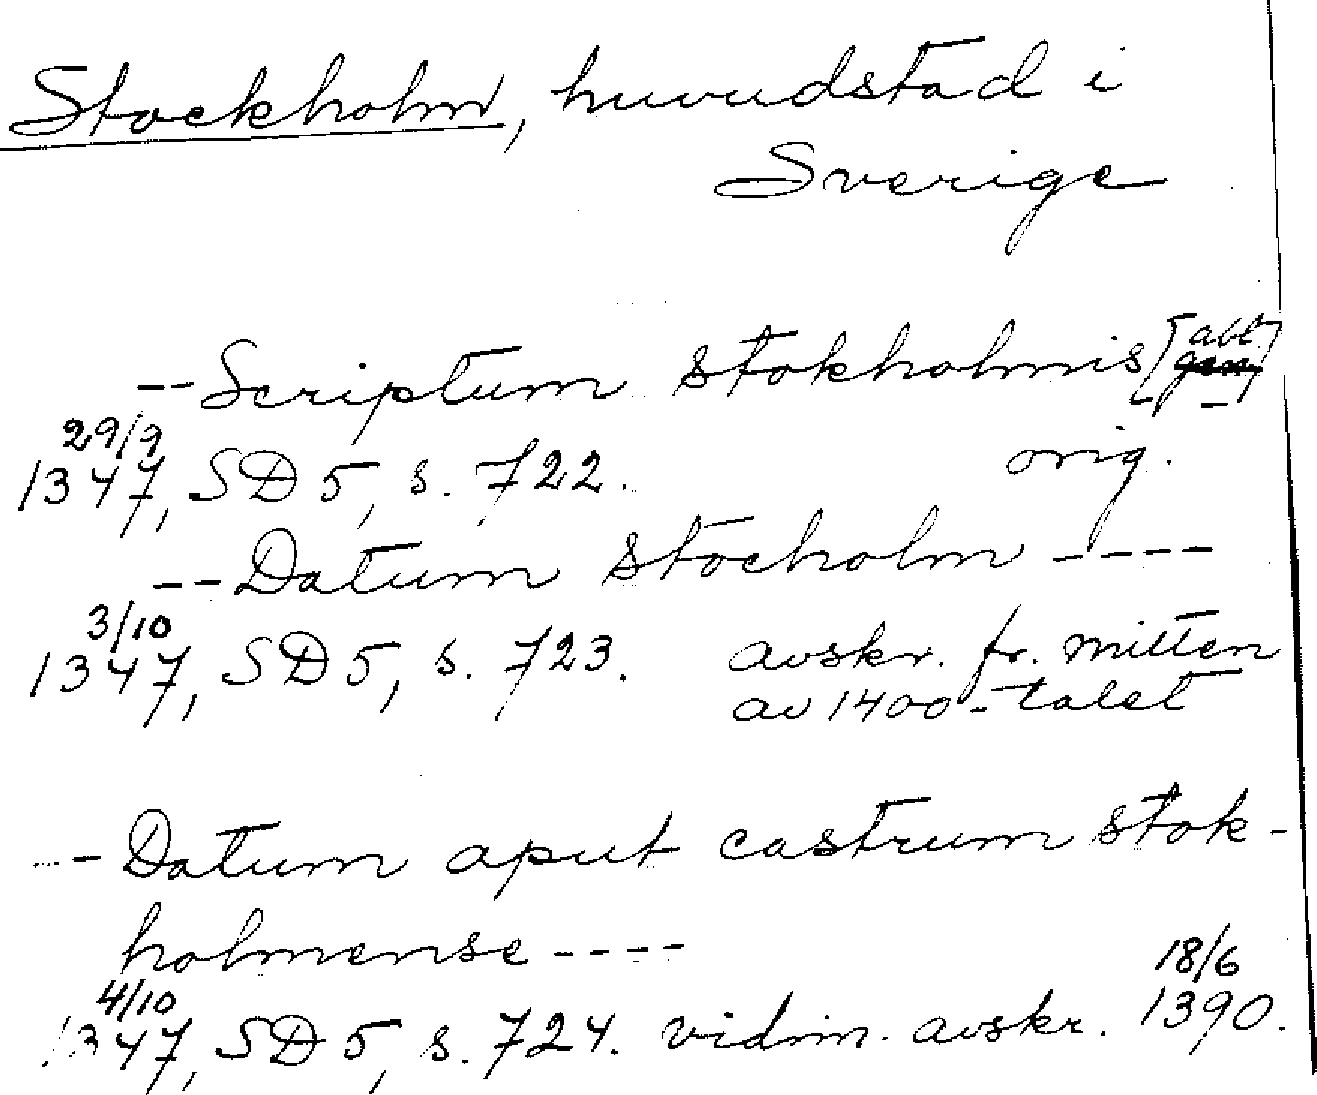 Stockholm, huvudstad i
Sverige
-- Scriptum stokholmis [abl
gen]
29/9
1347, SD 5, s. 722. orig.
-- Datum stocholm ----
3/10
1347, SD 5, s. 723. avskr. fr. mitten
av 1400-talet
-- Datum aput castrum stok-
holmense ----
4/10 18/6
1347, SD 5, s. 724. vidim. avskr. 1390.